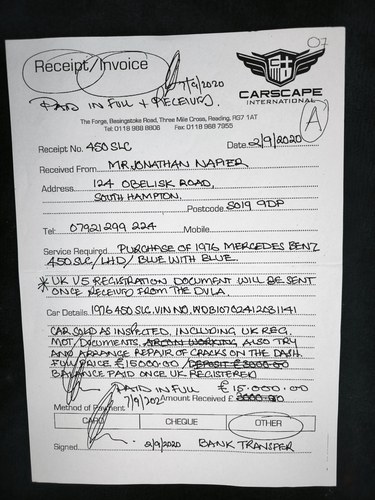 07
Receipt/Invoice
7/9/2020
PAID IN FULL & RECEIVED.
CARSCAPE
INTERNATIONAL
The Forge, Basingstoke Road, Three Mile Cross, Reading, RG7 1AT
Tel: 0118 988 8808 Fax: 0118 988 7955
A
Receipt No. 450 SLC Date 2/9/2020
Received From MR JONATHAN NAPIER
Address 124 OBELISK ROAD,
SOUTH HAMPTON.
Postcode SO19 9DP
Tel: 07921 299 224 Mobile
Service Required PURCHASE OF 1976 MERCEDES BENZ
450 SLC/LHD/BLUE WITH BLUE.
* UK V5 REGISTRATION DOCUMENT WILL BE SENT
ONCE RECEIVED FROM THE DVLA.
Car Details 1976 450 SLC. VIN NO. WDB10702412031141
CAR SOLD AS INSPECTED, INCLUDING UK REG.
MOT/DOCUMENTS, AIRCON WORKING ALSO TRY
AND ARRANGE REPAIR OF CRACKS ON THE DASH.
FULL PRICE £15000.00/DEPOSIT £3000.00
BALANCE PAID ONCE UK REGISTERED
PAID IN FULL £15.000.00
7/9/202 Amount Received £ 3000.00
Method of Payment
CARD CHEQUE OTHER
Signed 2/9/2020 BANK TRANSFER